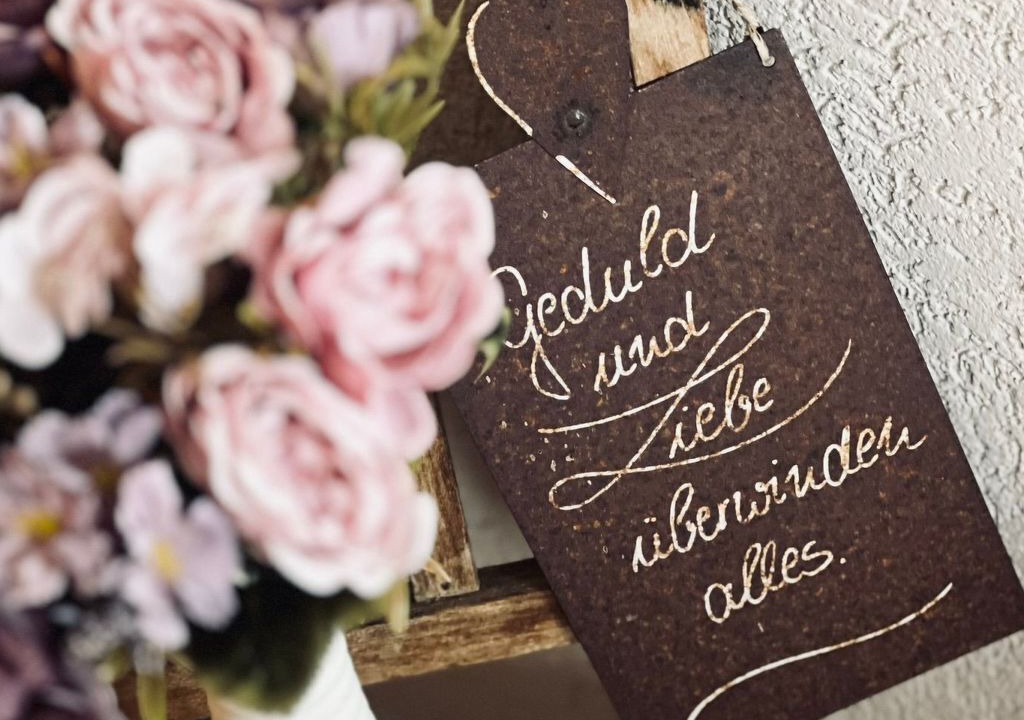 Geduld
und
Liebe
überwinden
alles.